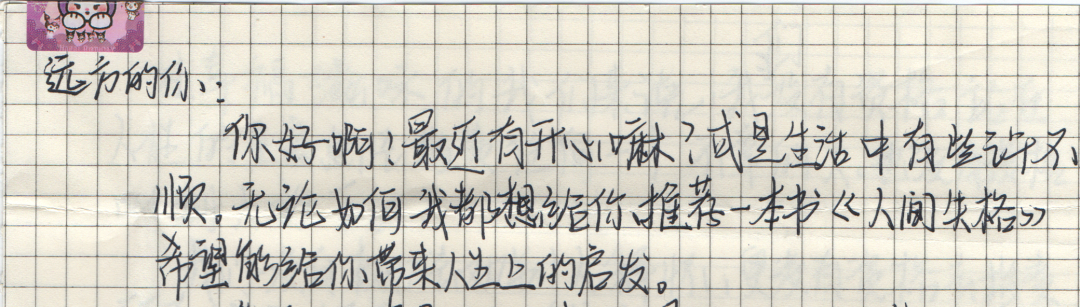 远方的你：
你好啊！最近有开心嘛？或是生活中有些许不
顺。无论如何我都想给你推荐一本书《人间失格》
希望能给你带来人生上的启发。